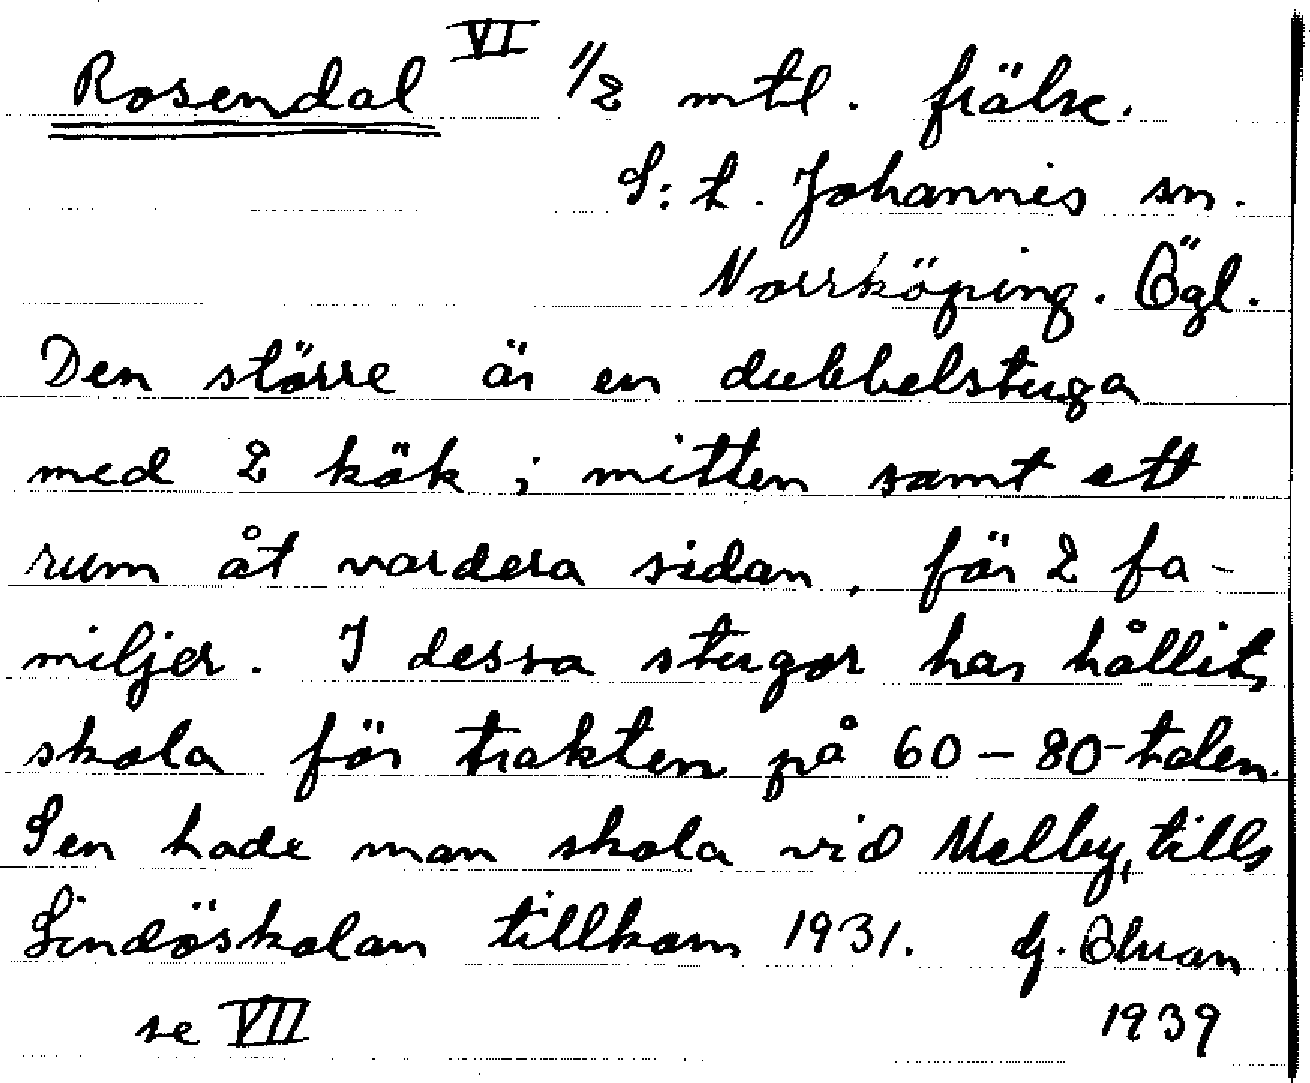 Rosendal VI 1/2 mtl. frälse.
S:t. Johannis sn.
Norrköping. Ögl.
Den större är en dubbelstuga
med 2 kök i mitten samt ett
rum åt vardera sidan, för 2 fa-
miljer. I dessa stugor har hållits
skola för trakten på 60-80-talen.
Sen hade man skola vid Melby, tills
Lindöskolan tillkom 1931. G.
se VII 1939